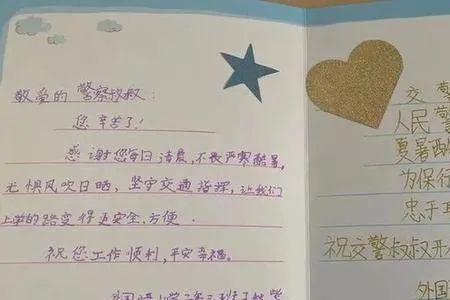 敬爱的 警察叔叔:
您 辛苦了!
感谢您每日清晨,不畏严寒酷暑,
无惧风吹日晒,坚守交通指挥,让我们
上学的路变得更安全、方便.
祝您工作顺利,平安幸福。
外国语小学二年三班
交警
人民警
夏暑酷
为保行
忠于
祝交警叔叔开
外国